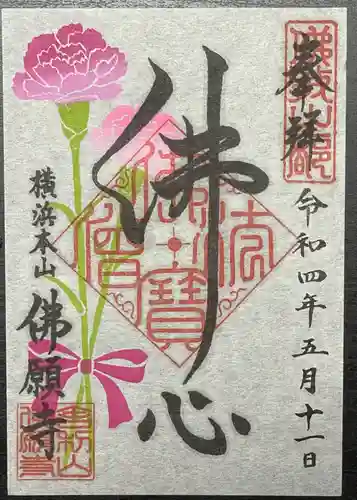 奉拝
令和四年五月十一日
佛心
横浜本山
佛願寺